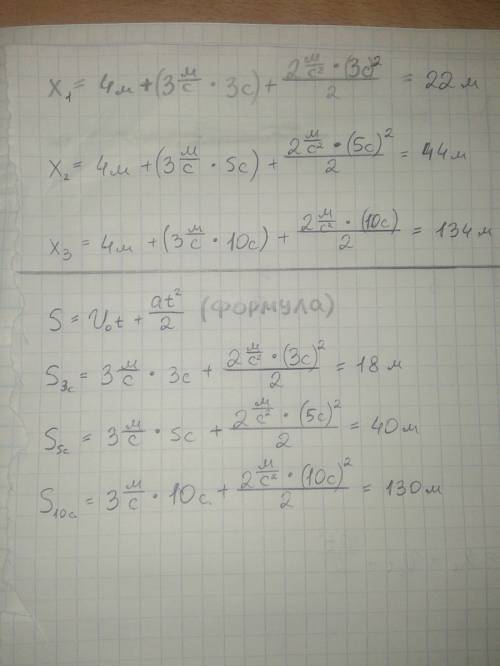 x₁ = 4м + (3 м/с · 3с) + (2 м/с² · (3с)²)/2 = 22 м
x₂ = 4м + (3 м/с · 5с) + (2 м/с² · (5с)²)/2 = 44 м
x₃ = 4м + (3 м/с · 10с) + (2 м/с² · (10с))/2 = 134 м
S = V₀t + at²/2 (формула)
S₃с = 3 м/с · 3с + (2 м/с² · (3с)²)/2 = 18 м
S₅с = 3 м/с · 5с + (2 м/с² · (5с)²)/2 = 40 м
S₁₀с = 3 м/с · 10с. + (2 м/с² · (10с)²)/2 = 130 м